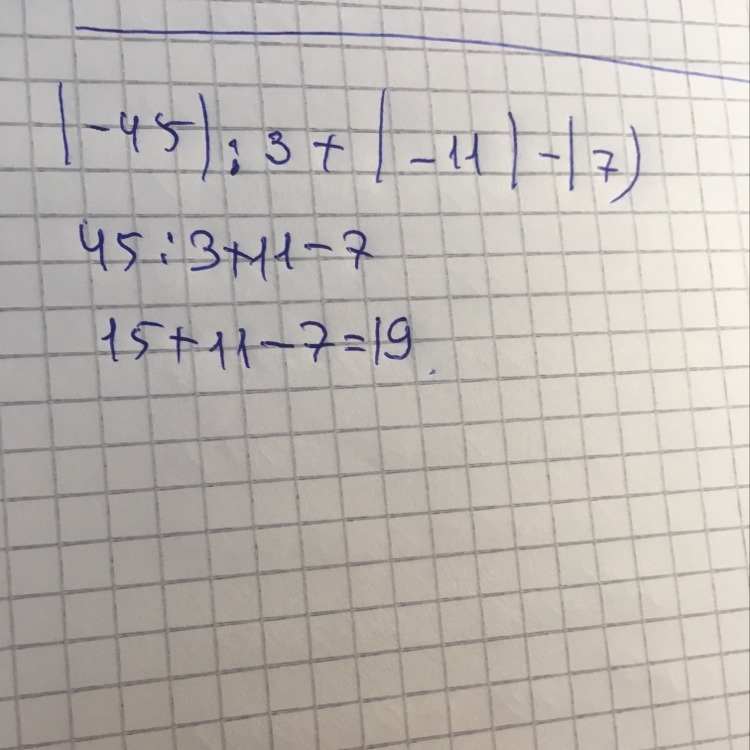 |-45| : 3 + |-11| - |7|
45 : 3 + 11 - 7
15 + 11 - 7 = 19.